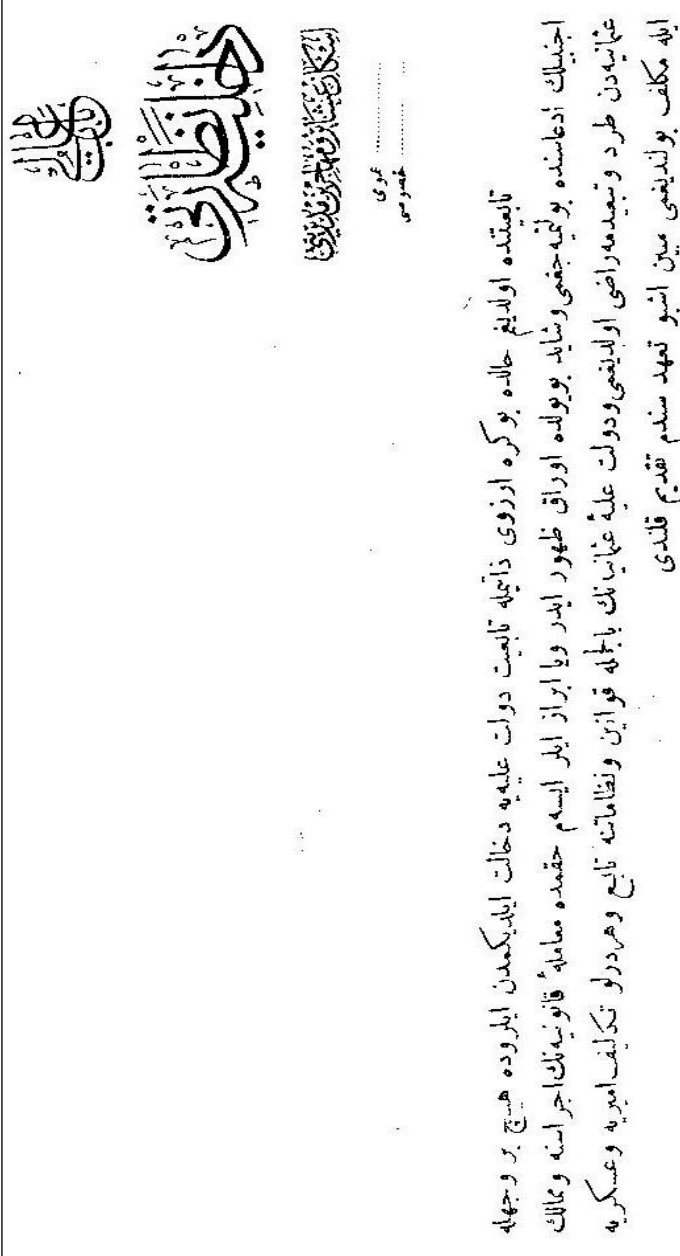 باب عالى
داخليه نظارتى
اسكان عشائر و مهاجرين مديريتى
عمومى
خصوصى
تابعيتنده اولديغم حالده بو كره ارزوى ذاتيمله تابعيت دولت عليه‌يه دخالت ايلديكمدن ايلروده هيچ بر وجهله
اجنبيلك ادعاسنده بولنميه‌جغمى وشايد بويولده اوراق ظهور ايدر ويا ابراز ايلر ايسه‌م حقمده معاملهٔ قانونيه‌نك اجراسنه وممالك
عثمانيه‌دن طرد وتبعيدمه راضى اولديغمى ودولت عليهٔ عثمانيانك بالجمله قوانين ونظاماتنه تابع وهردرلو تكاليف اميريه وعسكريه
ايله مكلف بولنديغمى مبين اشبو تعهد سندم تقديم قلندى